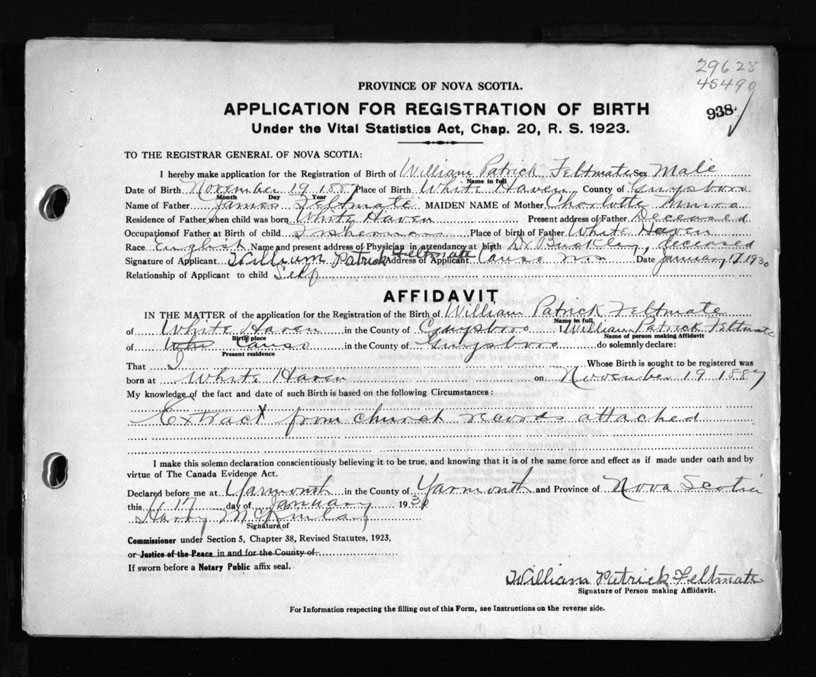 29628
45490
938
PROVINCE OF NOVA SCOTIA.
APPLICATION FOR REGISTRATION OF BIRTH
Under the Vital Statistics Act, Chap. 20, R. S. 1923.
TO THE REGISTRAR GENERAL OF NOVA SCOTIA:
I hereby make application for the Registration of Birth of William Patrick Feltmate Sex Male
Name in full
Date of Birth November 19 1887 Place of Birth White Haven County of Guysboro
Month Day Year
Name of Father James Feltmate MAIDEN NAME of Mother Charlotte Munro
Residence of Father when child was born White Haven Present address of Father Deceased
Occupation of Father at Birth of child Fisherman Place of birth of Father White Haven
Race English Name and present address of Physician in attendancy at birth Dr Buckley, deceased
Signature of Applicant William Patrick Feltmate Address of Applicant Canso N.S. Date January 17 1930
Relationship of Applicant to child Self
AFFIDAVIT
IN THE MATTER of the application for the Registration of the Birth of William Patrick Feltmate
Name in full
of White Haven in the County of Guysboro I William Patrick Feltmate
Birth place Name of person making Affidavit
of Canso in the County of Guysboro do solemnly declare:
Present residence
That I Whose Birth is sought to be registered was
born at White Haven on November 19 1887
My knowledge of the fact and date of such Birth is based on the following Circumstances:
Extract from church records attached
I make this solemn declaration conscientiously believing it to be true, and knowing that it is of the same force and effect as if made under oath and by
virtue of The Canada Evidence Act.
Declared before me at Yarmouth in the County of Yarmouth and Province of Nova Scotia
this 17 day of January 1930
Harry McKinlay
Signature of
Commissioner under Section 5, Chapter 38, Revised Statutes, 1923,
or Justice of the Peace in and for the County of
If sworn before a Notary Public affix seal.
William Patrick Feltmate
Signature of Person making Affidavit.
For Information respecting the filling out of this Form, see Instructions on the reverse side.